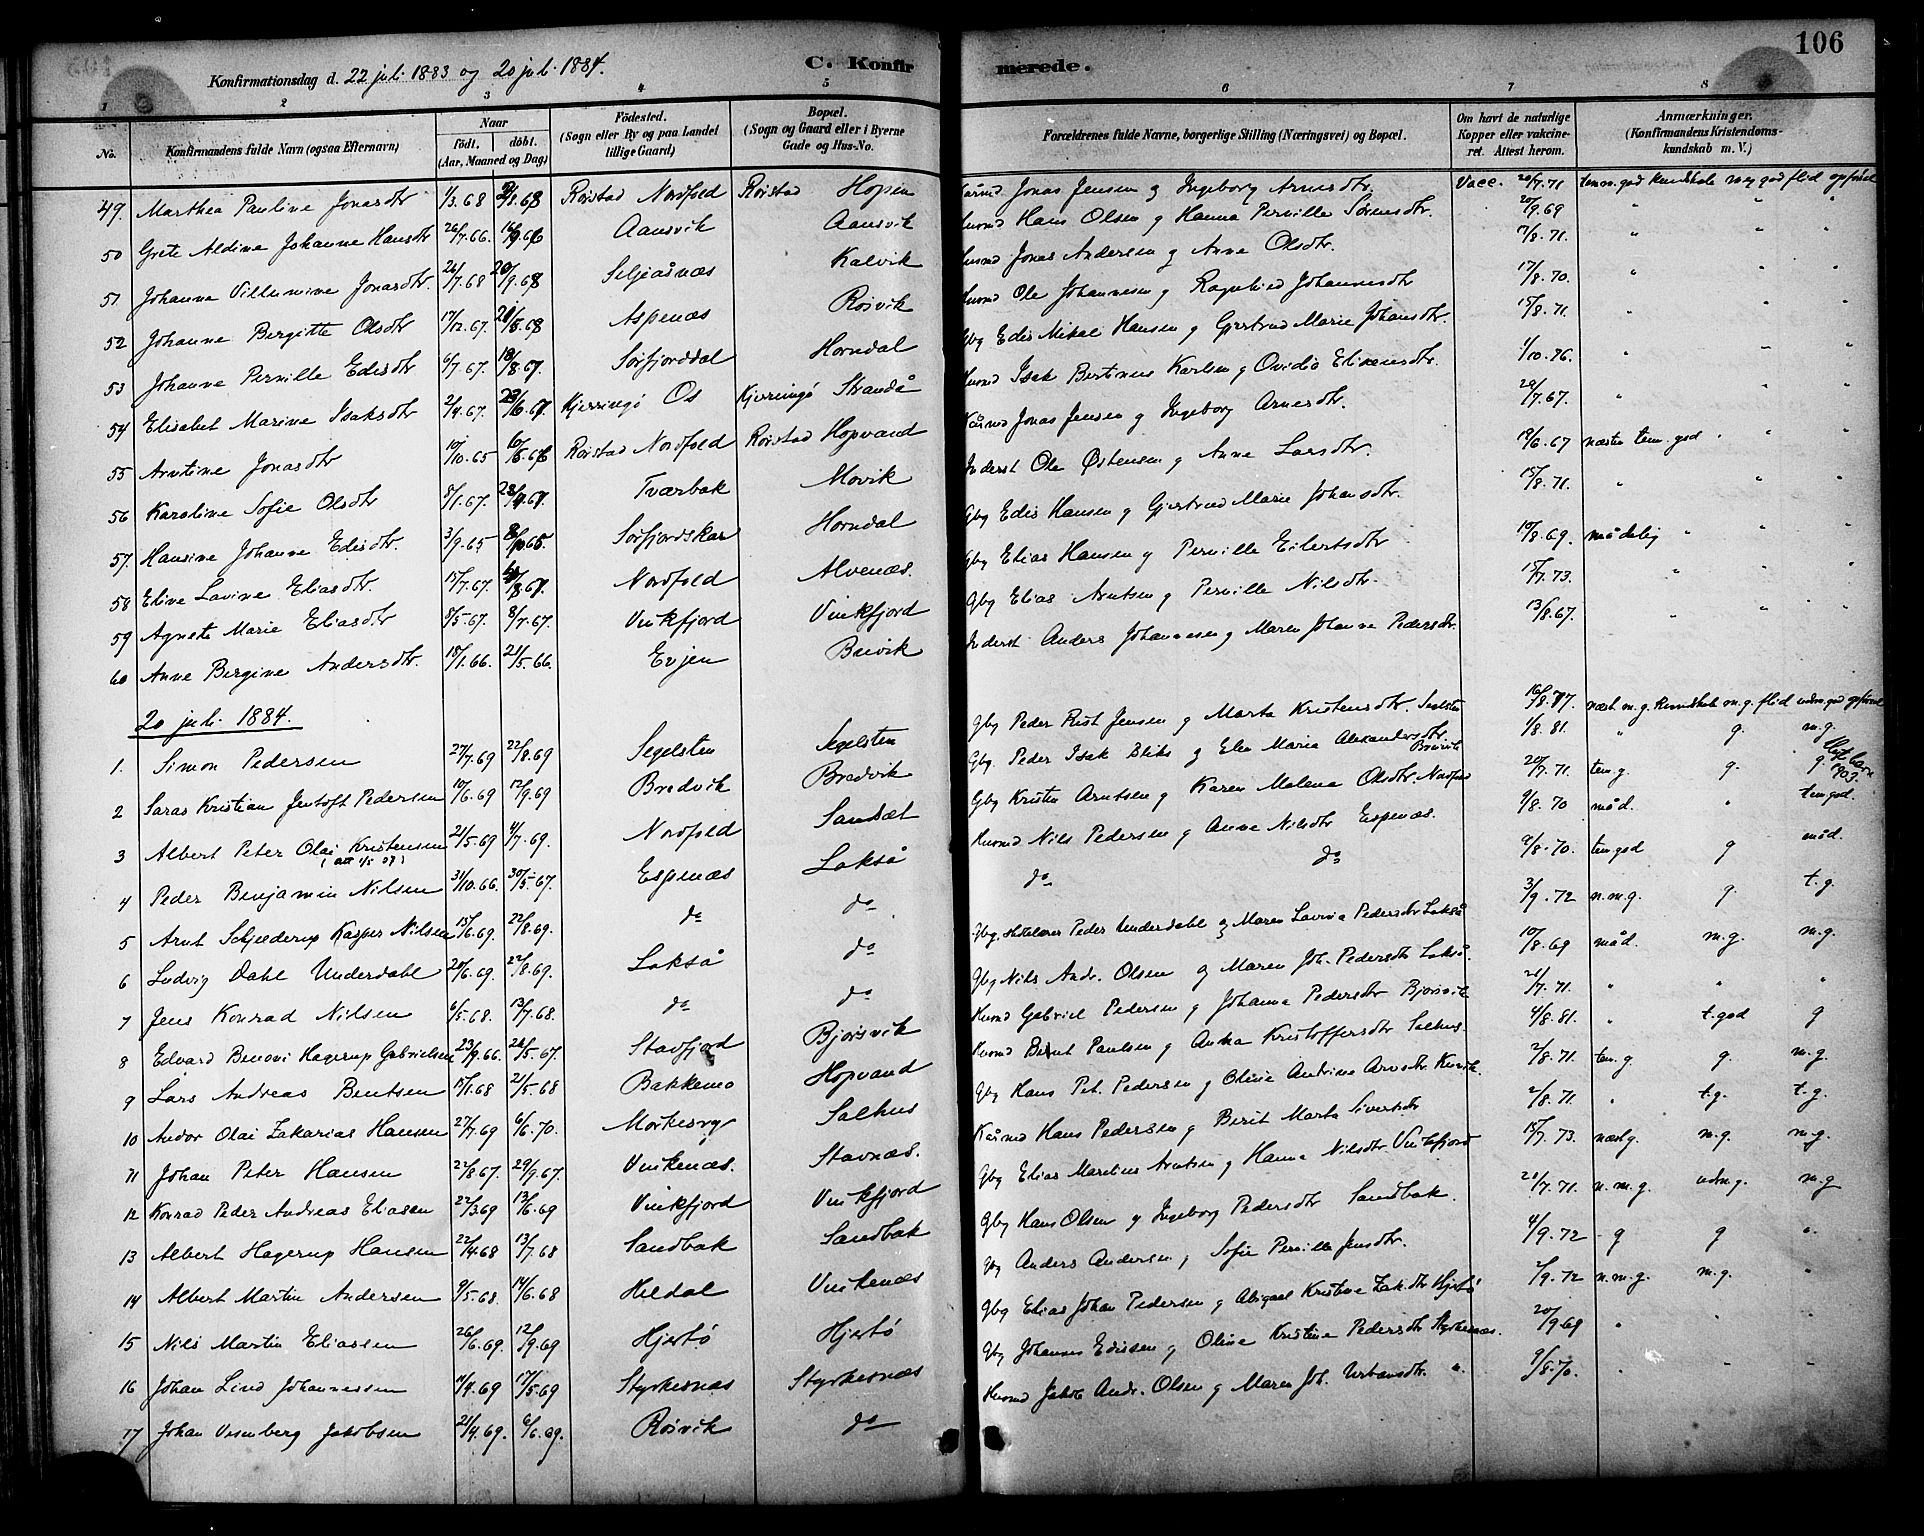 106
Konfirmationsdag d. 22 juli 1883 og 20 juli 1884.
C. Konfirmerede.
1 2 3 4 5 6 7 8
No. Konfirmandens fulde Navn (ogsaa Efternavn) Naar født. døbt. (Aar, Maaned og Dag) Fødested. (Sogn eller By og paa Landet tillige Gaard) Bopæl. (Sogn og Gaard eller i Byerne Gade og Hus-No. Forældrenes fulde Navne, borgerlige Stilling (Næringsvei) og Bopæl. Om havt de naturlige Kopper eller vaccineret. Attest herom. Anmærkninger. (Konfirmandens Kristendomskundskab m. V.)
49. Marthea Pauline Jonasdtr 1/3.68 Røistad Nordfold Røistad Hopen Jonas Jensen og Ingeborg Arnesdtr. Vacc. 20/7.71 tem. god kundskab meg. god flid opførsel
50 Grete Aldine Johanne Hansdtr 26/7.66. Aansvik Aansvik Husmd Hans Olsen og Hanna Pernille Sørensdtr. 20/9.69 " " "
51 Johanne Villumine Jonasdtr. 26/7.68 20/9.68 Seljeåsnæs Kalvik Husmd Jonas Andersen og Anne Olsdtr. 17/8.71. " " "
52 Johanne Bergitte Olsdtr 17/12.67. Aspenæs Røsvik Husmd Ole Johannesen og Ragnhild Johannesdtr 17/8.70. " " "
53 Johanne Pernille Edisdtr 6/7.67. 18/8.67. Sørfjorddal Horndal Gbg Edis Mikal Hansen og Gjertrud Marie Johansdtr. 15/8.71. " " "
54 Elisabet Marine Isaksdtr 2/4.67. 23/6.67. Kjerringø Os Kjerringø Strandå Husmd Isak Bertinus Karlsen og Ovidia Elisensdtr. 1/10.76. " " "
55 Arntine Jonasdtr 10/10.65 Røistad Nordfold Røistad Hopvand Kårmd Jonas Jensen og Ingeborg Arnesdtr. 28/7.67. " " "
56 Karoline Sofie Olsdtr 5/1.67. Tværbak Movik Inderst Ole Østensen og Anne Larsdtr. 19/6.67 næsten tem. god " " "
57. Hansine Johanne Edisdtr. 3/9.65 Sørfjordskar Horndal Gbg Edis Hansen og Gjertrud Marie Johansdtr. 15/8.71. " " "
58 Eline Lavine Eliasdtr. 15/7.67. Nordfold Alvenæs. Gbg Elias Hansen og Pernille Eilertsdtr 19/8.69. mådelig " " "
59 Agnete Marie Eliasdtr 8/5.67. 8/7.67. Vinkfjord Vinkfjord Gbg Elias Arntsen og Pernille Nilsdtr. 15/7.73. " " "
60 Anne Bergine Andersdtr. 18/1.66. 21/5.66. Evjen Brevik Inderst Anders Johannesen og Maren Johanne Pedersdtr. 13/8.67. " " "
20 juli 1884.
1. Simon Pedersen 27/7.69 22/8.69 Segelsten Segelsten Gbg Peder Rist Jensen og Marta Kristensdtr. 16/8.77. næst. m. g. kundskab m.g. flid udm. god opførsel
2 Saras Kristian Jentoft Pedersen 10/6.69 12/9.69 Bredvik Bredvik Gbg. Peder Isak Bliks og Elen Maria Alexandersdtr Bredvik 1/8.81. " g. m.g.
3 Albert Peter Olai Kristensen 21/5.69 4/7.69. Nordfold Sandsæt Gbg Kristen Arntsen og Karen Malena Olsdtr. Nordfold 20/7.71. tem.g. g. g. 1903.
(att 1/5 07)
4 Peder Benjamin Nilsen 31/10.66. 30/5.67. Espenæs Lakså Husmd Nils Pedersen og Anne Nilsdtr Espenæs. 9/8.70 måd. " tem.god.
5 Arnt Schjelderup Kasper Nilsen 15/6.69. 22/8.69. do do do do 9/8.70. tem.god g måd.
6 Ludvig Dahl Underdahl 20/6.69. 22/8.69. Lakså do Gbg. Skolelærer Peder Underdahl og Maren Lovisa Pedersdtr Lakså 3/9.72 n.m.g. g. t.g.
7 Jens Konrad Nilsen 6/5.68. 13/7.68. do do Gbg Nils Andr. Olsen og Maren Joh. Pedersdtr Lakså. 10/8.69 måd. m.g. m.g.
8 Edvard Benoni Hagerup Gabrielsen 23/9.66. 26/5.67. Stavfjord Bjørsvik Husmd Gabriel Pedersen og Johanna Pedersdtr Bjørsvik 21/7.71. " " "
9 Lars Andreas Bentsen 15/1.68 21/5.68 Bakkemo Hopvand Husmd Bernt Paulsen og Anna Kristoffersdtr Salhus. 4/8.81. " t.god g
10 Andor Olai Zakarias Hansen 27/7.69 6/6.70. Mørkesvig Salhus Gbg Hans Pet. Pedersen og Oline Andrine 2/8.71. tem.g g. m.g.
11 Johan Peter Hansen 22/8.67. 29/9.67. Vinkenæs. Stavnæs. Kårmd Hans Pedersen og Berit Marta Sivertsdtr 2/8.71. " t.g. t.g.
12 Konrad Peder Andreas Eliasen 22/3.69 13/6.69 Vinkfjord Vinkfjord Gbg Elias Martinus Arntsen og Hanna Nilsdtr Vinkfjord 15/7.73. næstg. m.g. m.g.
13 Albert Hagerup Hansen 22/4.68 13/7.68 Sandbak Sandbak Gbg Hans Olsen og Ingeborg Pedersdtr Sandbak. 21/7.71. n.m.g. udm.g. m.g
14 Albert Martin Andersen 9/5.68. 14/6.68 Heldal Vinkenæs Gbg Anders Andersen og Sofie Pernille Jensdtr. 4/9.72 g g "
15 Nils Martin Eliassen 26/6.69. 12/9.69 Hjertø Hjertø Gbg Elias Johan Pedersen og Abigael Kristine Zak.dtr Hjertø 2/9.72 n.m.g. m.g. "
16 Johan Lind Johannessen 14/4.69 17/5.69 Styrkesnæs Styrkesnæs Gbg Johannes Edissen og Oline Kristine Pedersdtr Styrkesnæs. 20/9.69 " " "
17 Johan Vesenberg Jakobsen 21/4.69. 6/6.69. Røsvik do Husmd Jakob Andr. Olsen og Maren Joh. Urbansdtr. " 9/8.70. " " "